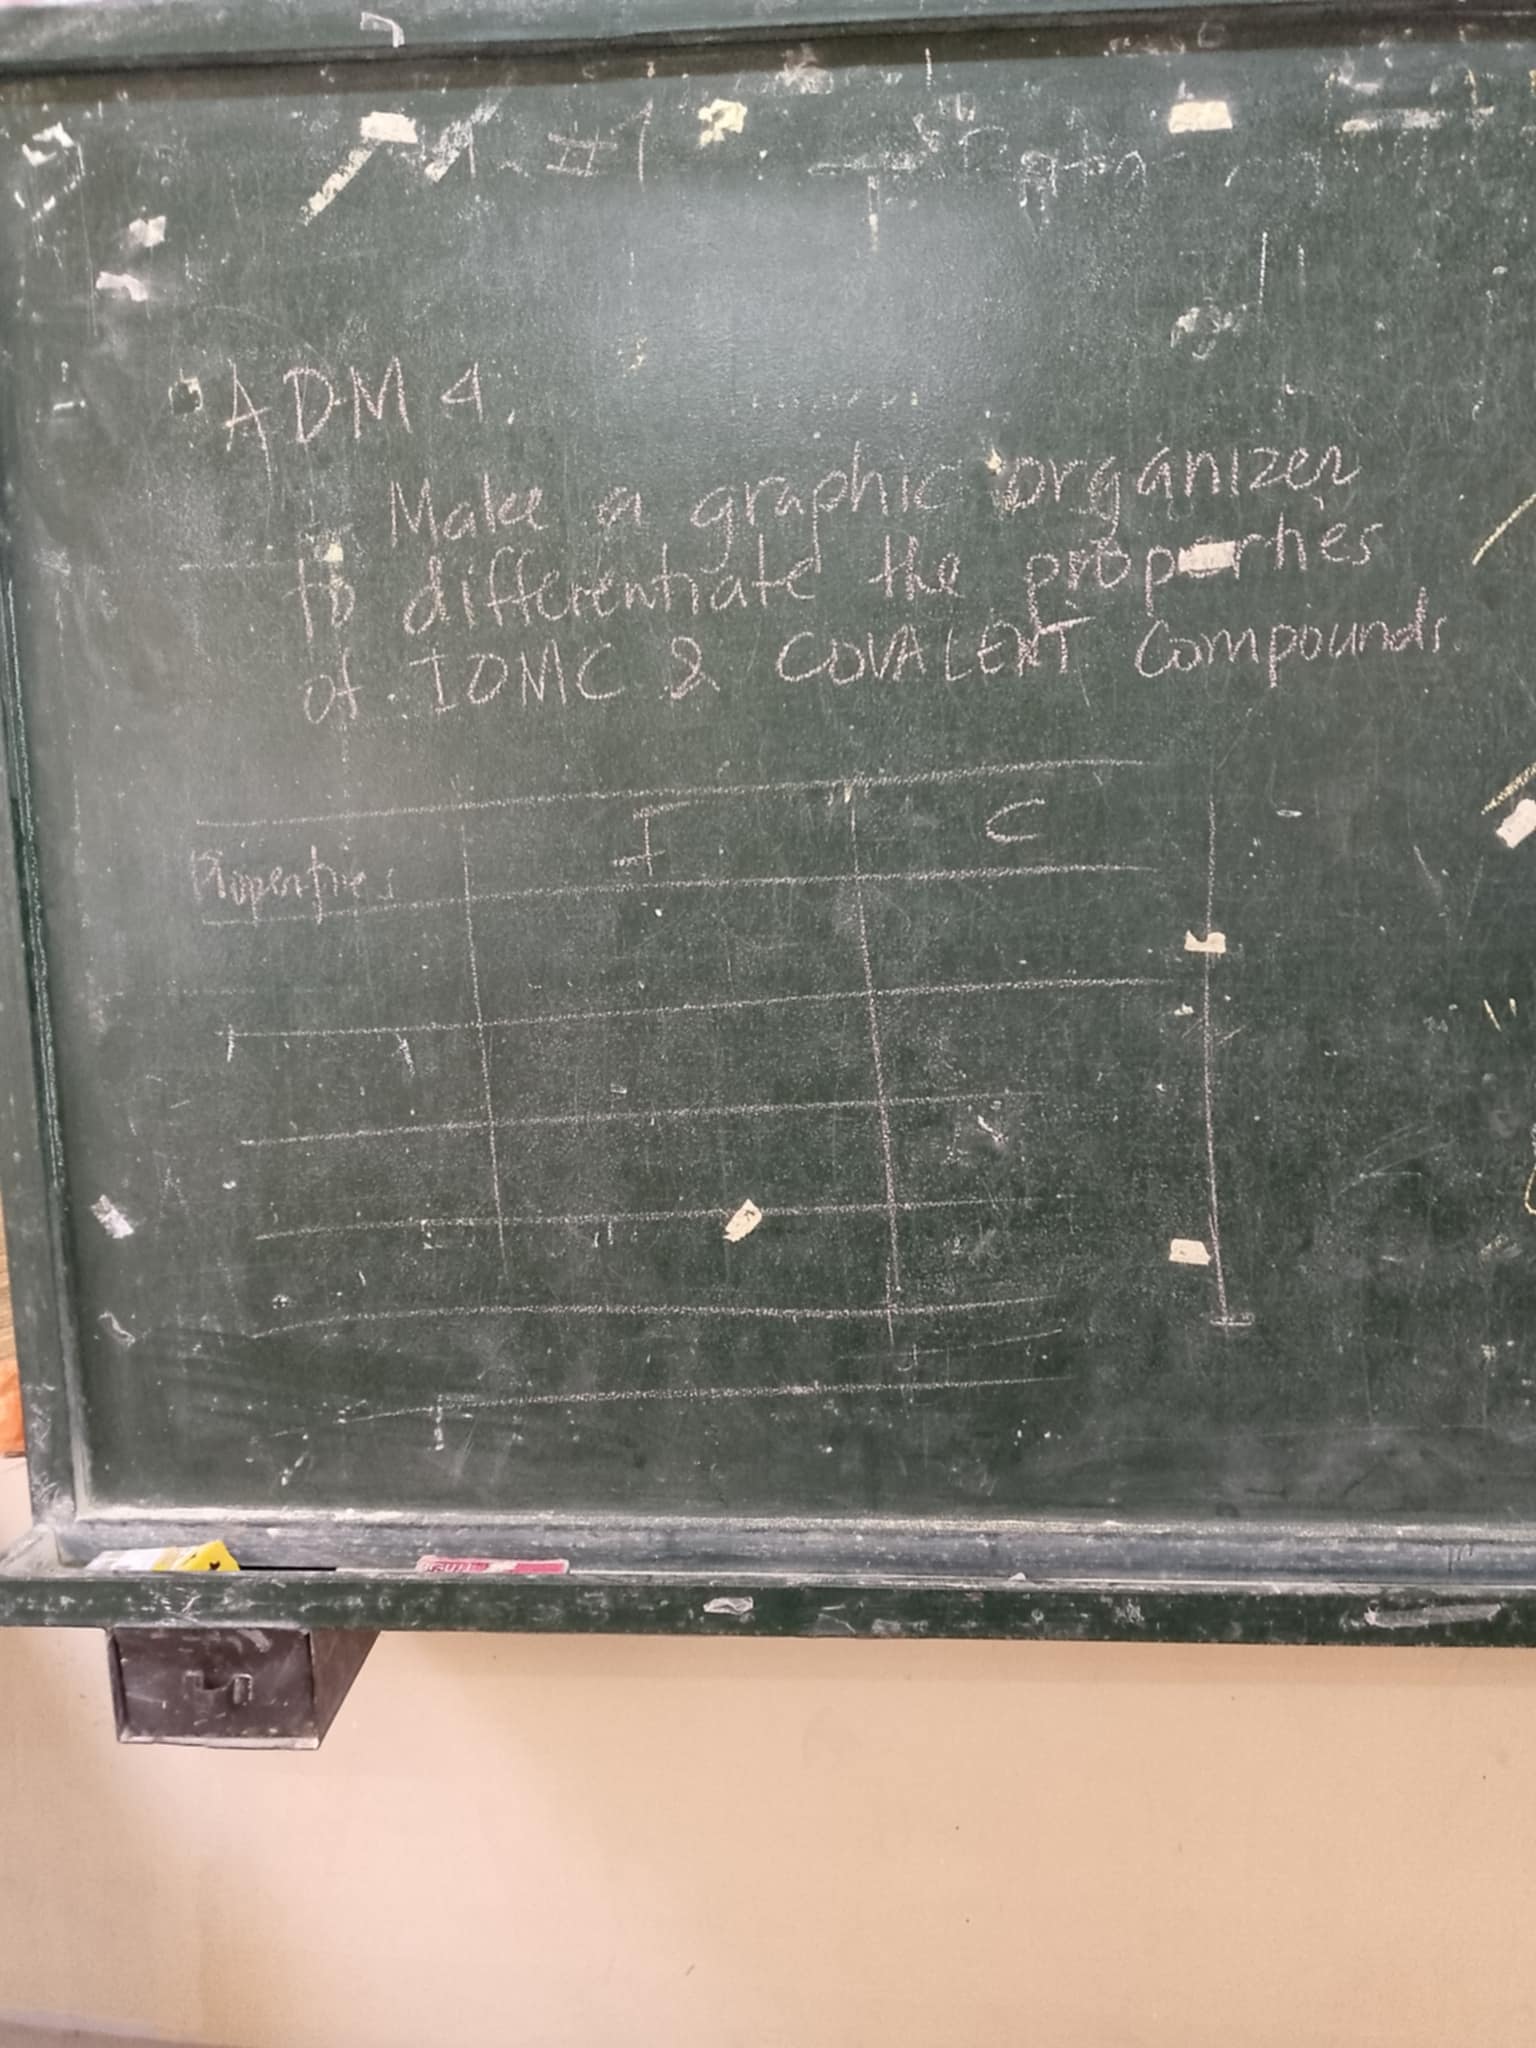 #1
ADM 4.
Make a graphic organizer
to differentiate the properties
of IONIC & COVALENT Compounds.
Properties I C